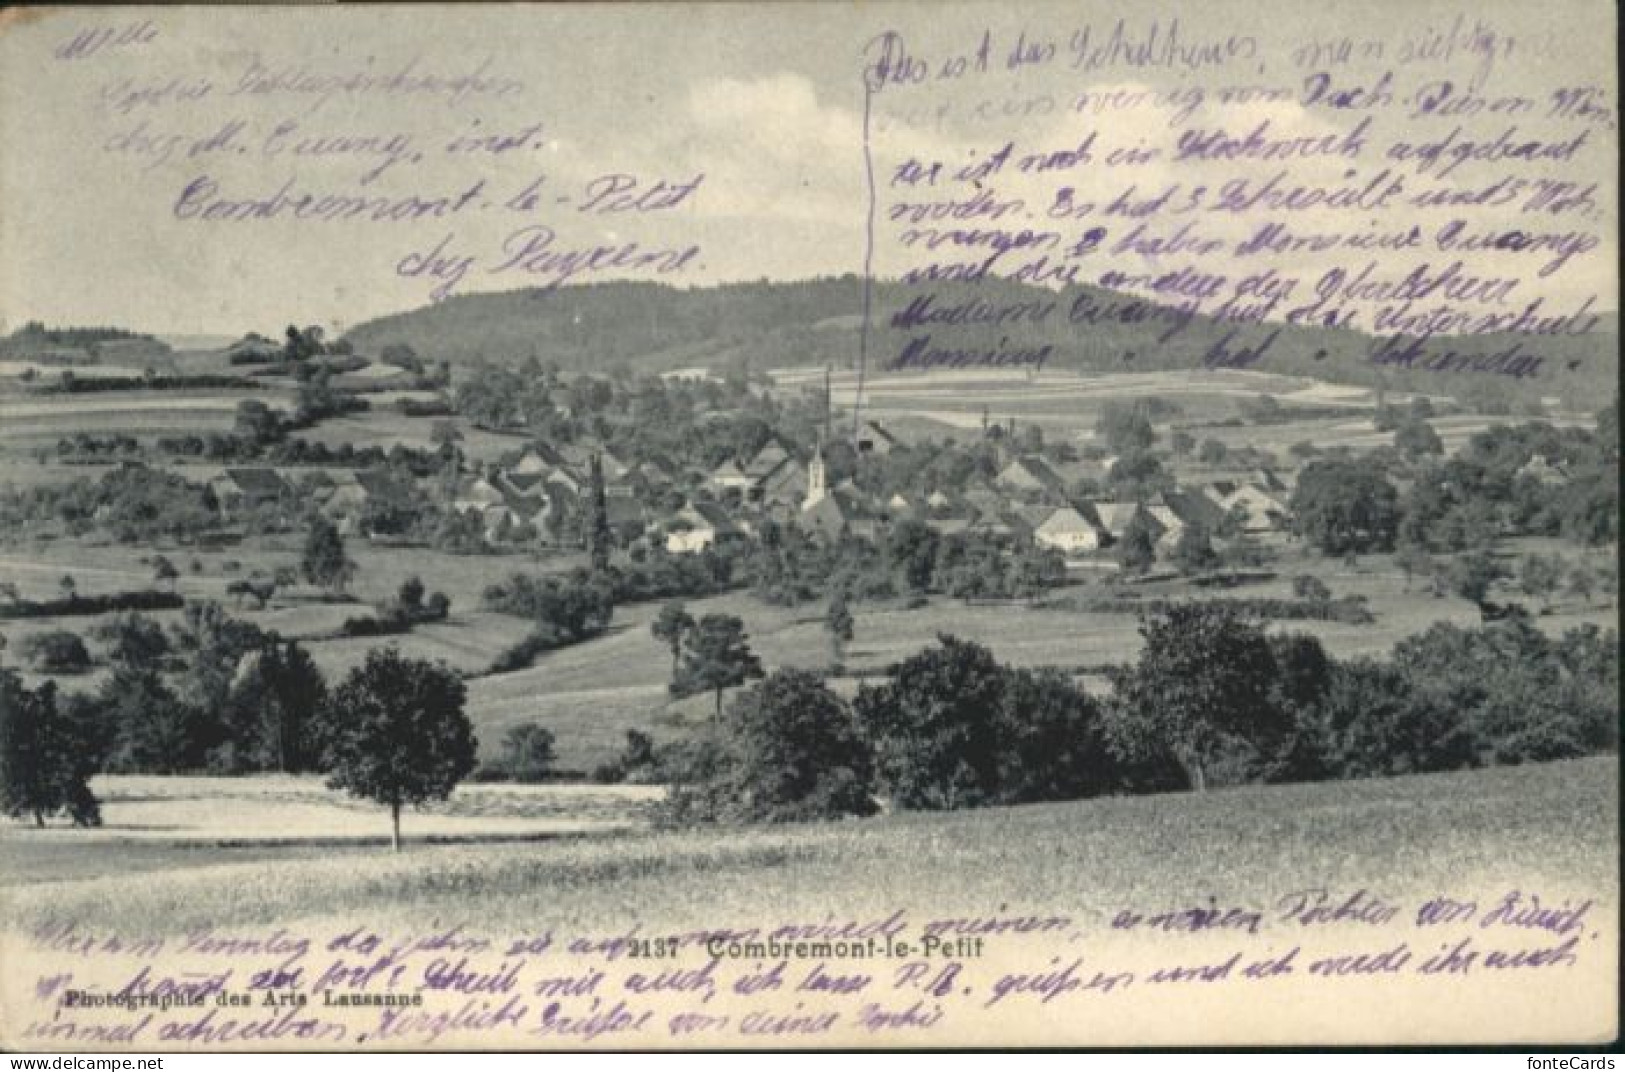 Mlle
Sophie
chez M. Cuany, inst.
Combremont-le-Petit
chez Payerne.
Das ist das Schulhaus, man sieht
nur ein wenig vom Dach. Diesen Win-
ter ist noch ein Stockwerk aufgebaut
worden. Es hat 3 Schesäle und 3 Woh-
nungen haben Monsieur Cuany
und die andere der Oberlehrer
Madame Cuany hat die Unterschule
Monsieur " hat " Sekundar "
Sonntag da auf man würde meinen, es wären Töchter von Zürich.
fort? Schreib mir auch, ich lasse P.R. grüssen und ich werde ihr auch
einmal schreiben. Herzliche Grüsse von deiner Sophie
2137 Combremont-le-Petit
Photographie des Arts Lausanne
fonteCards